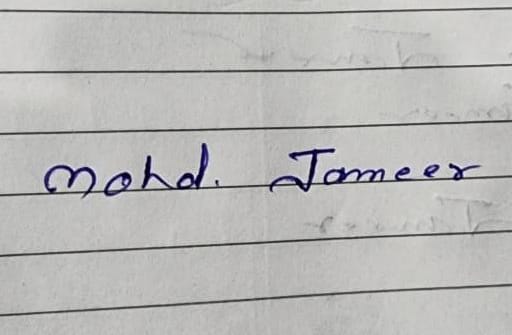 Mohd. Jameer